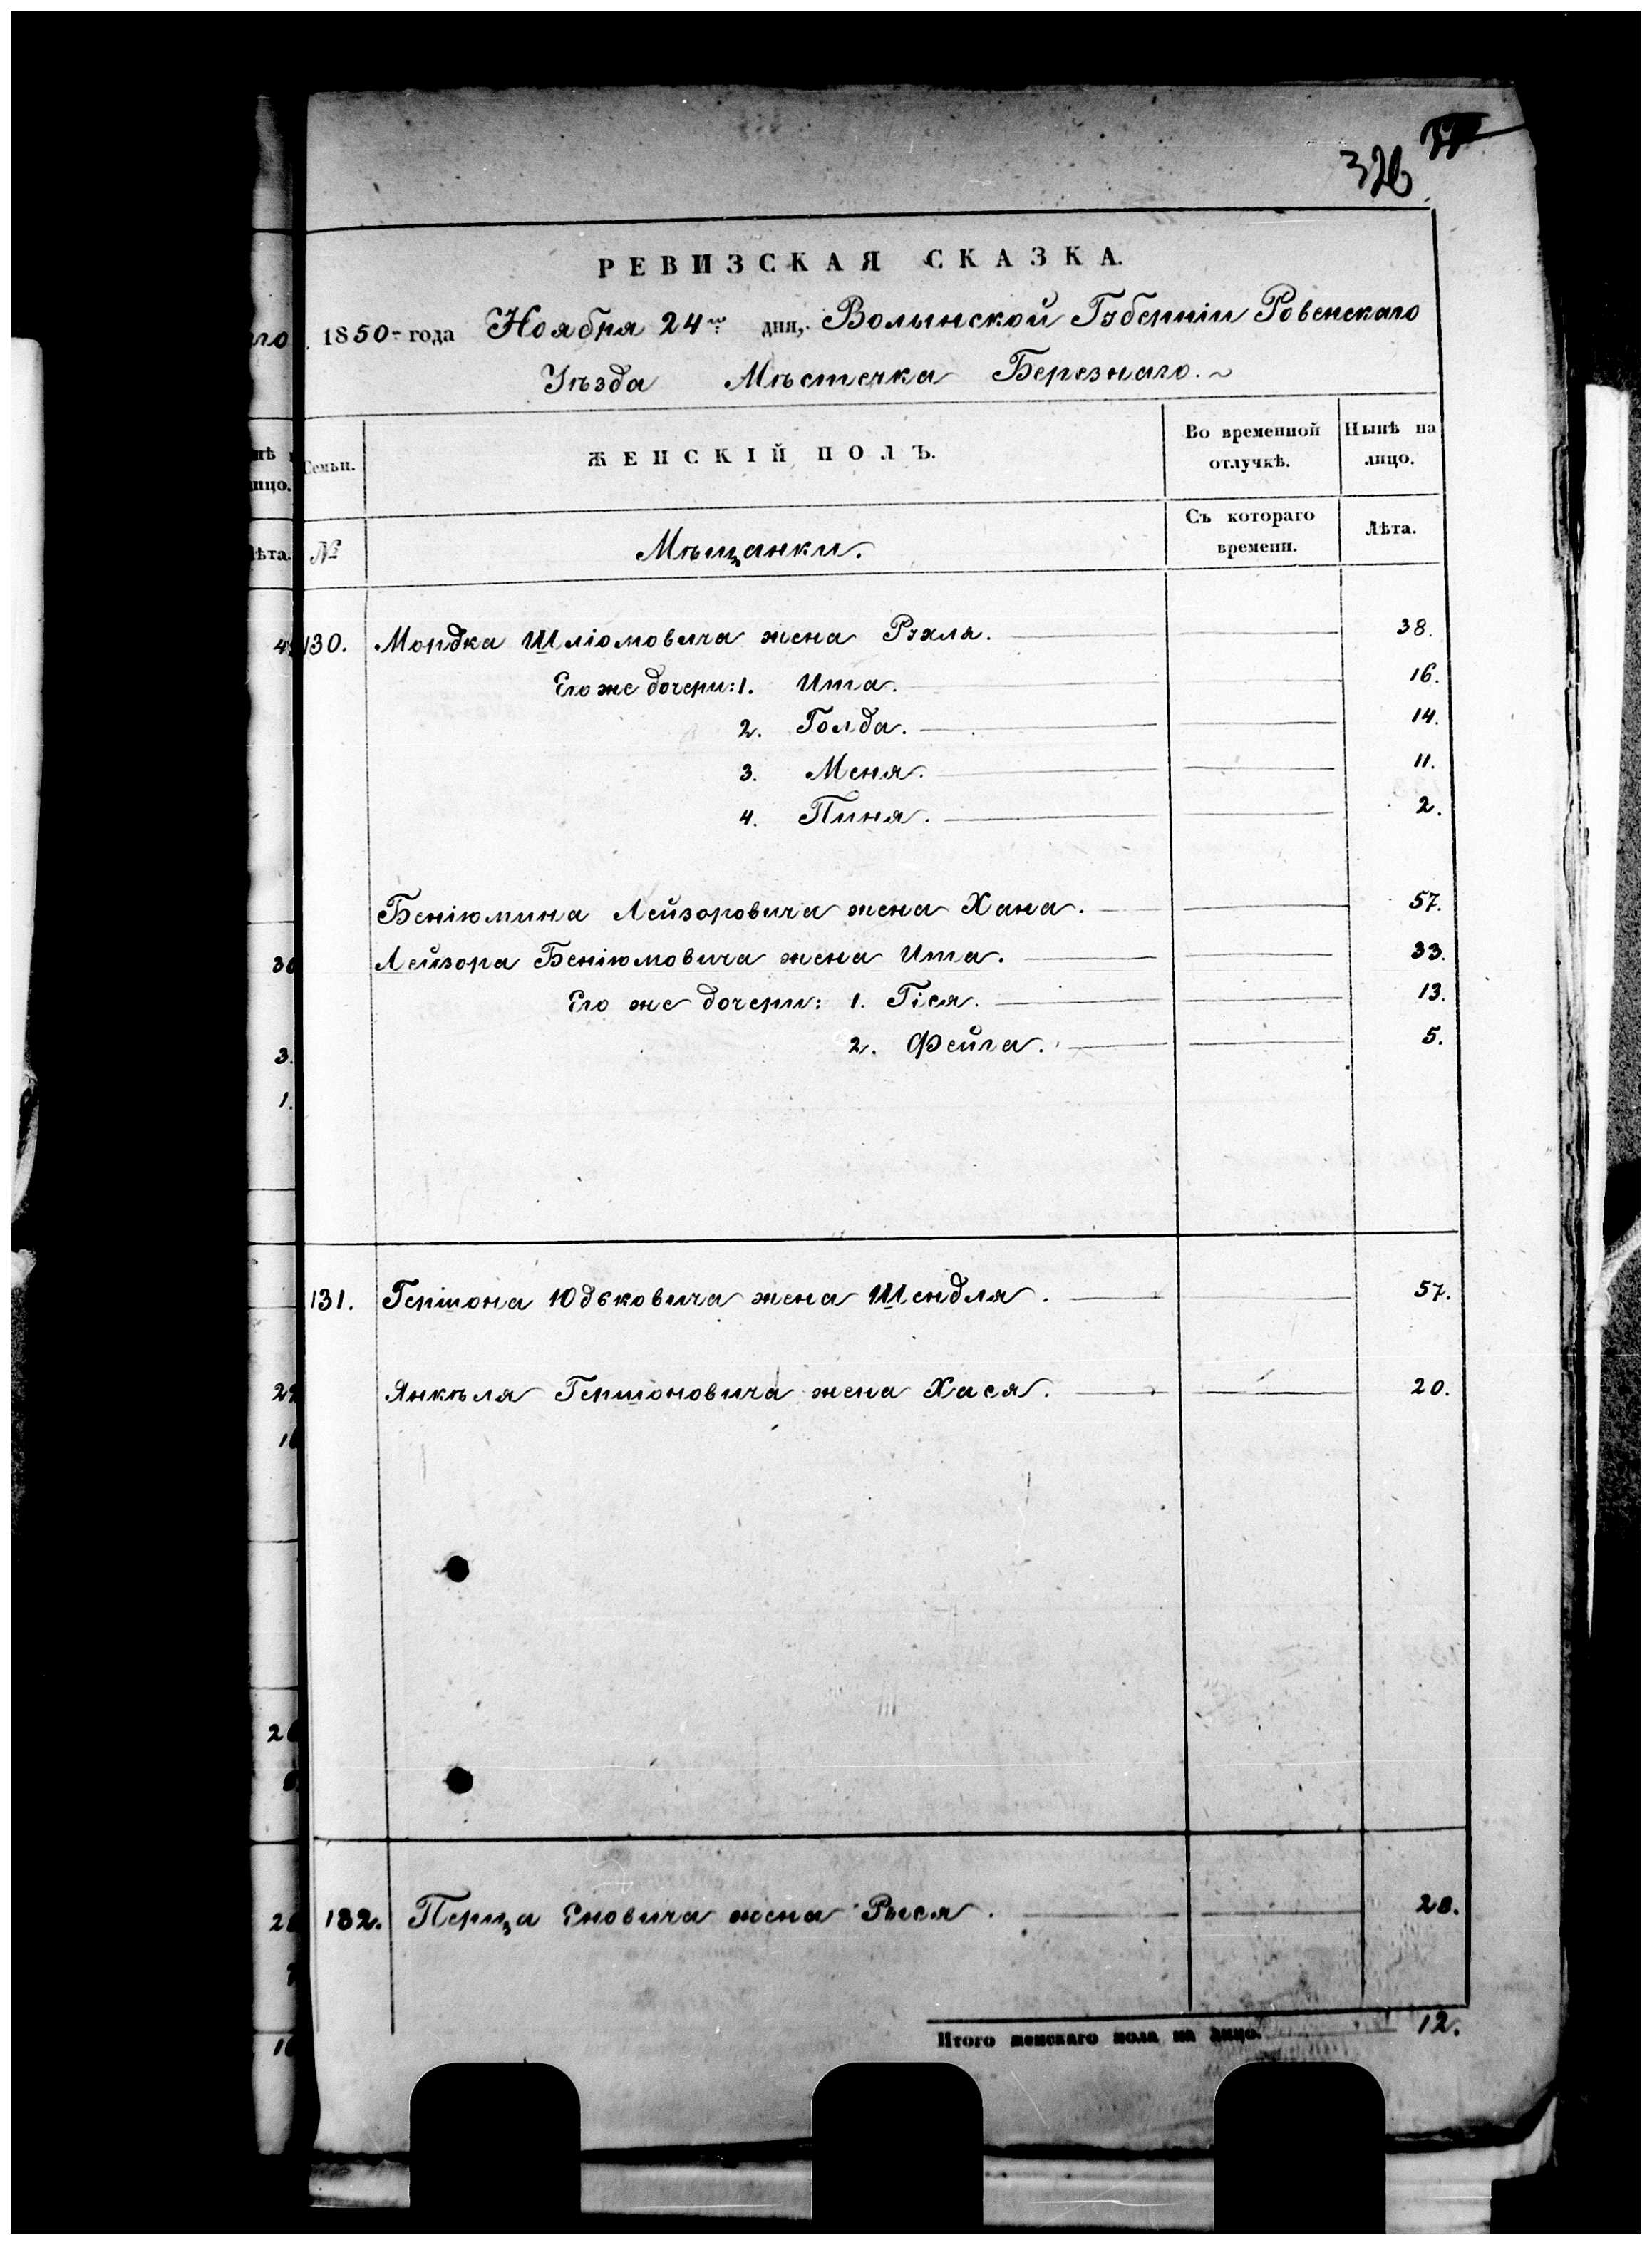 326
РЕВИЗСКАЯ СКАЗКА.
1850 года Ноября 24го дня, Волынской Губерніи Ровенскаго
Уѣзда Мѣстечка Березнаго.
Семьи. ЖЕНСКІЙ ПОЛЪ. Во временной отлучкѣ. Нынѣ на лицо.
№ Мѣщанки. Съ котораго времени. Лѣта.
130. Мордка Шліомовича жена Рухля. 38.
Его же дочери: 1. Ита. 16.
2. Голда. 14.
3. Меня. 11.
4. Пиня. 2.
Беніюмина Лейзоровича жена Хана. 57.
Лейзора Беніюмовича жена Ита. 33.
Его же дочери: 1. Гіся. 13.
2. Фейга. 5.
131. Гершона Юдьковича жена Шендля. 57.
Янкѣля Гершоновича жена Хася. 20.
132. Перца Еновича жена Рыся. 28.
Итого женскаго пола на лицо. 12.